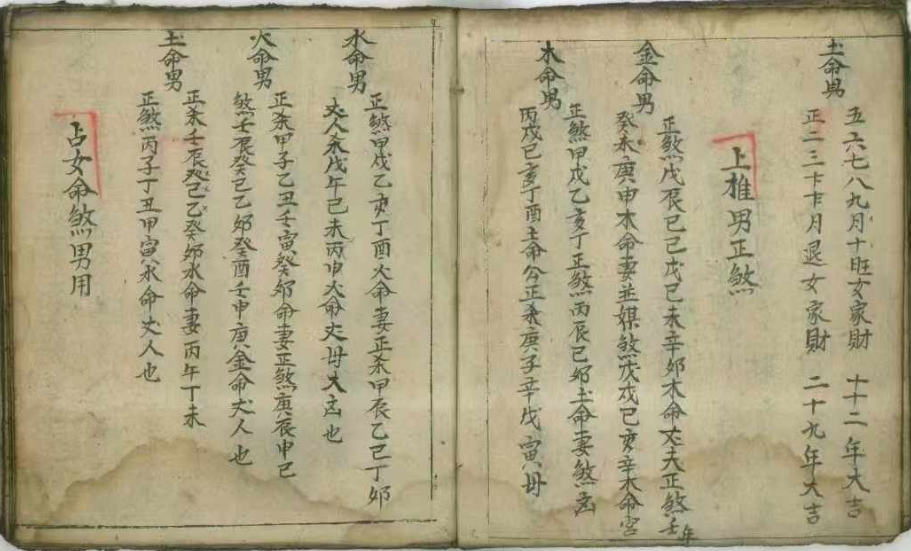 土命男
五六七八九月十旺女家財 十十二年大吉
正二三十十月退女家財 二十九年大吉
上推男正煞
金命男
正煞戊辰己巳戊己未辛卯木命丈夫正煞壬年
癸未庚申木命妻並媒煞戊戌己亥辛木命宮
木命男
正煞甲戌乙亥丁正煞丙辰己卯土命妻煞
丙戌己亥丁酉土命公正杀庚子辛戊寅母
水命男
正煞甲戌乙亥丁酉火命妻正杀甲辰乙己丁卯
丈人永戊午己未丙申火命丈母大吉也
火命男
正杀甲子乙丑壬寅癸卯命妻正煞庚辰申己
煞壬辰癸己乙卯癸酉壬申庚金命丈人也
土命男
正杀壬辰癸己乙癸卯水命妻丙午丁未
正煞丙子丁丑甲寅水命丈人也
占女命煞男用